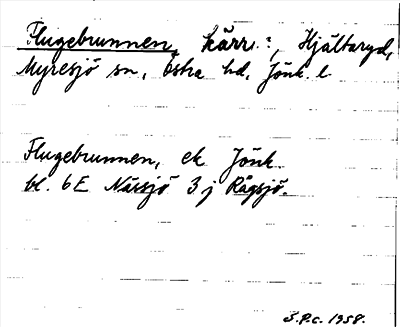 Flugebrunnen, kärr:, Hjältaryd,
Myresjö sn, Östra hd, Jönk. l.
Flugebrunnen, ek Jönk.
bl. 6E Nässjö 3 j Rågsjö.
S.P.C. 1958.